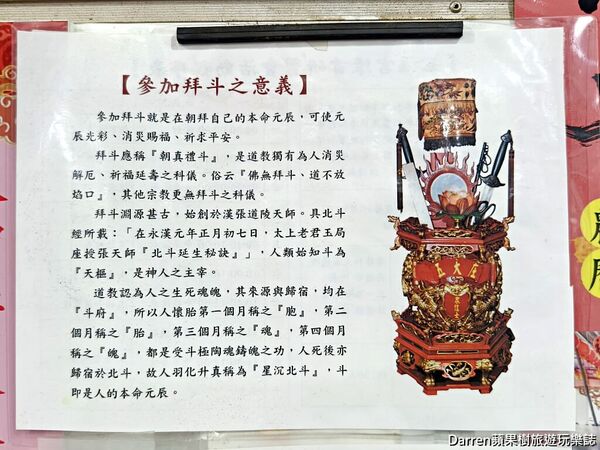 【參加拜斗之意義】
參加拜斗就是在朝拜自己的本命元辰，可使元
辰光彩、消災賜福、祈求平安。
拜斗應稱『朝真禮斗』，是道教獨有為人消災
解厄、祈福延壽之科儀。俗云『佛無拜斗、道不放
焰口』，其他宗教更無拜斗之科儀。
拜斗淵源甚古，始創於漢張道陵天師。具北斗
經所載：「在永漢元年正月初七日，太上老君玉局
座授張天師『北斗延生秘訣』」，人類始知斗為
『天樞』，是神人之主宰。
道教認為人之生死魂魄，其來源與歸宿，均在
『斗府』，所以人懷胎第一個月稱之『胞』，第二
個月稱之『胎』，第三個月稱之『魂』，第四個月
稱之『魄』，都是受斗極陶魂鑄魄之功，人死後亦
歸宿於北斗，故人羽化升真稱為『星沉北斗』，斗
即是人的本命元辰。
Darren蘋果樹旅遊玩樂誌